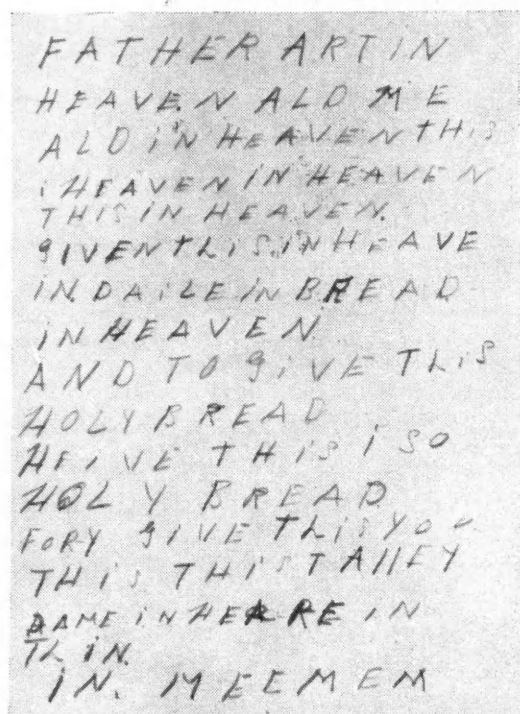 FATHER ART IN
HEAVE.N ALD ME
ALD iN HEAVEN THIS
iHEAVEN IN HEAVEN
THIS IN HEAVEN.
gIVEN THIS.iN HEAVE
IN.DAiLE iN BREAD
iN HEAVEN
AND TO giVE THiS
HOLY BREAD
HEIVE THiS i SO
HOLY BREAD
FORY GIVE THiS YOU
THiS THiS TALLEY
DAME iN HERRE IN
IN.
IN. MEEMEM